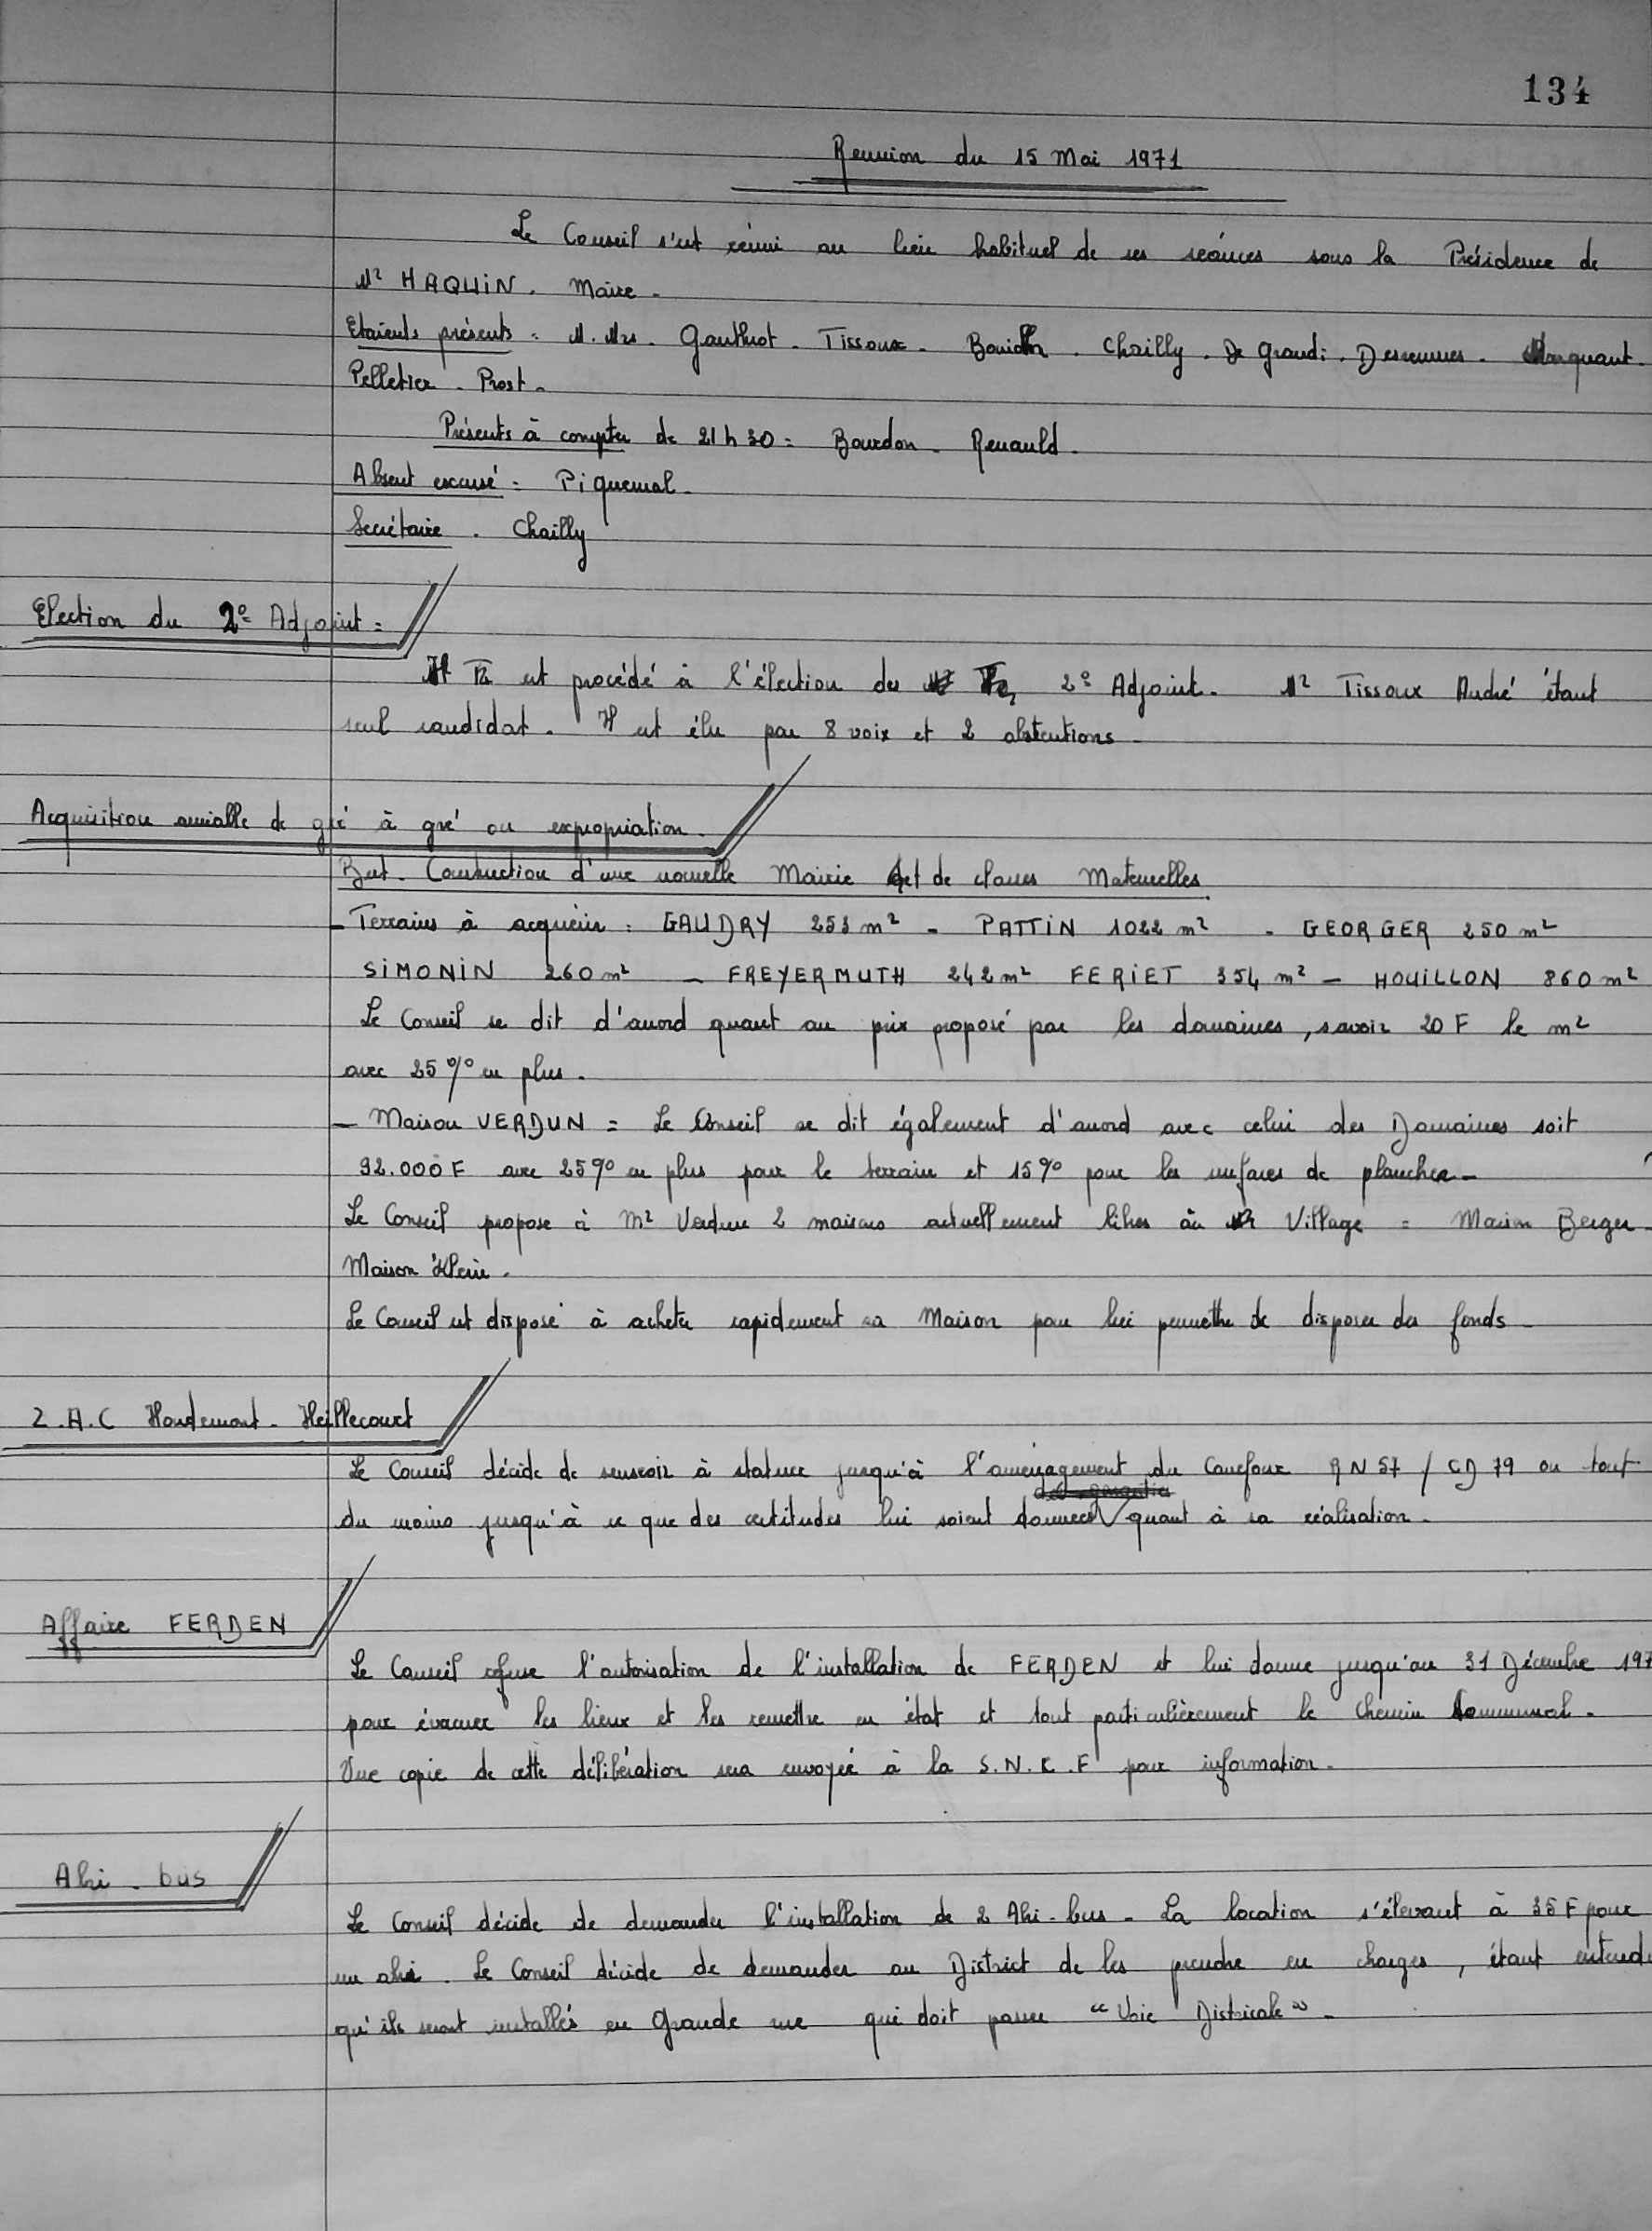 134
Reunion du 15 Mai 1971
Le Conseil s'est réuni au lieu habituel de ses séances sous la Présidence de
Mr HAQUIN. Maire.
Etaients présents : M. Mrs. Gauthrot. Tissoux. Chailly. De Grandi. Descennes. Marquant.
Pelletier. Prost.
Présents à compter de 21h30 : Bourdon. Renauld.
Absent excusé : Piquemal.
Secrétaire. Chailly
Election du 2e Adjoint :
Il est procédé à l'élection du 2e Adjoint. Mr Tissoux André étant
seul candidat. Il est élu par 8 voix et 2 abstentions.
Acquisition amiable de gré à gré ou expropriation.
But. Construction d'une nouvelle Mairie et de classes Maternelles.
- Terrains à acquérir : GAUDRY 253 m² - PATTIN 1022 m² - GEORGER 250 m²
SIMONIN 260 m² - FREYERMUTH 242 m² FERIET 354 m² - HOUILLON 860 m²
Le Conseil se dit d'accord quant au prix proposé par les domaines, savoir 20 F le m²
avec 25 % en plus.
- Maison VERDUN = Le Conseil se dit également d'accord avec celui des Domaines soit
92.000 F avec 25 % en plus pour le terrain et 15 % pour les surfaces de plancher -
Le Conseil propose à Mr Verdun 2 maisons actuellement libres au Village = Maison Berger -
Maison Klein.
Le Conseil est disposé à acheter rapidement sa Maison pour lui permettre de disposer des fonds -
Z.A.C Houdemont - Heillecourt
Le Conseil décide de surseoir à statuer jusqu'à l'aménagement du Carrefour RN 57 / CD 79 ou tout
du moins jusqu'à ce que des certitudes lui soient données quant à sa réalisation.
Affaire FERDEN
Le Conseil refuse l'autorisation de l'installation de FERDEN et lui donne jusqu'au 31 Décembre 197
pour évacuer les lieux et les remettre en état et tout particulièrement le Chemin Communal.
Une copie de cette délibération sera envoyée à la S.N.C.F pour information.
Abri - bus
Le Conseil décide de demander l'installation de 2 Abri-bus - La location s'élevant à 35 F pour
un abri. Le Conseil décide de demander au District de les prendre en charges, étant entendu
qu'ils seront installés en Grande rue qui doit passer "Voie Districale" -